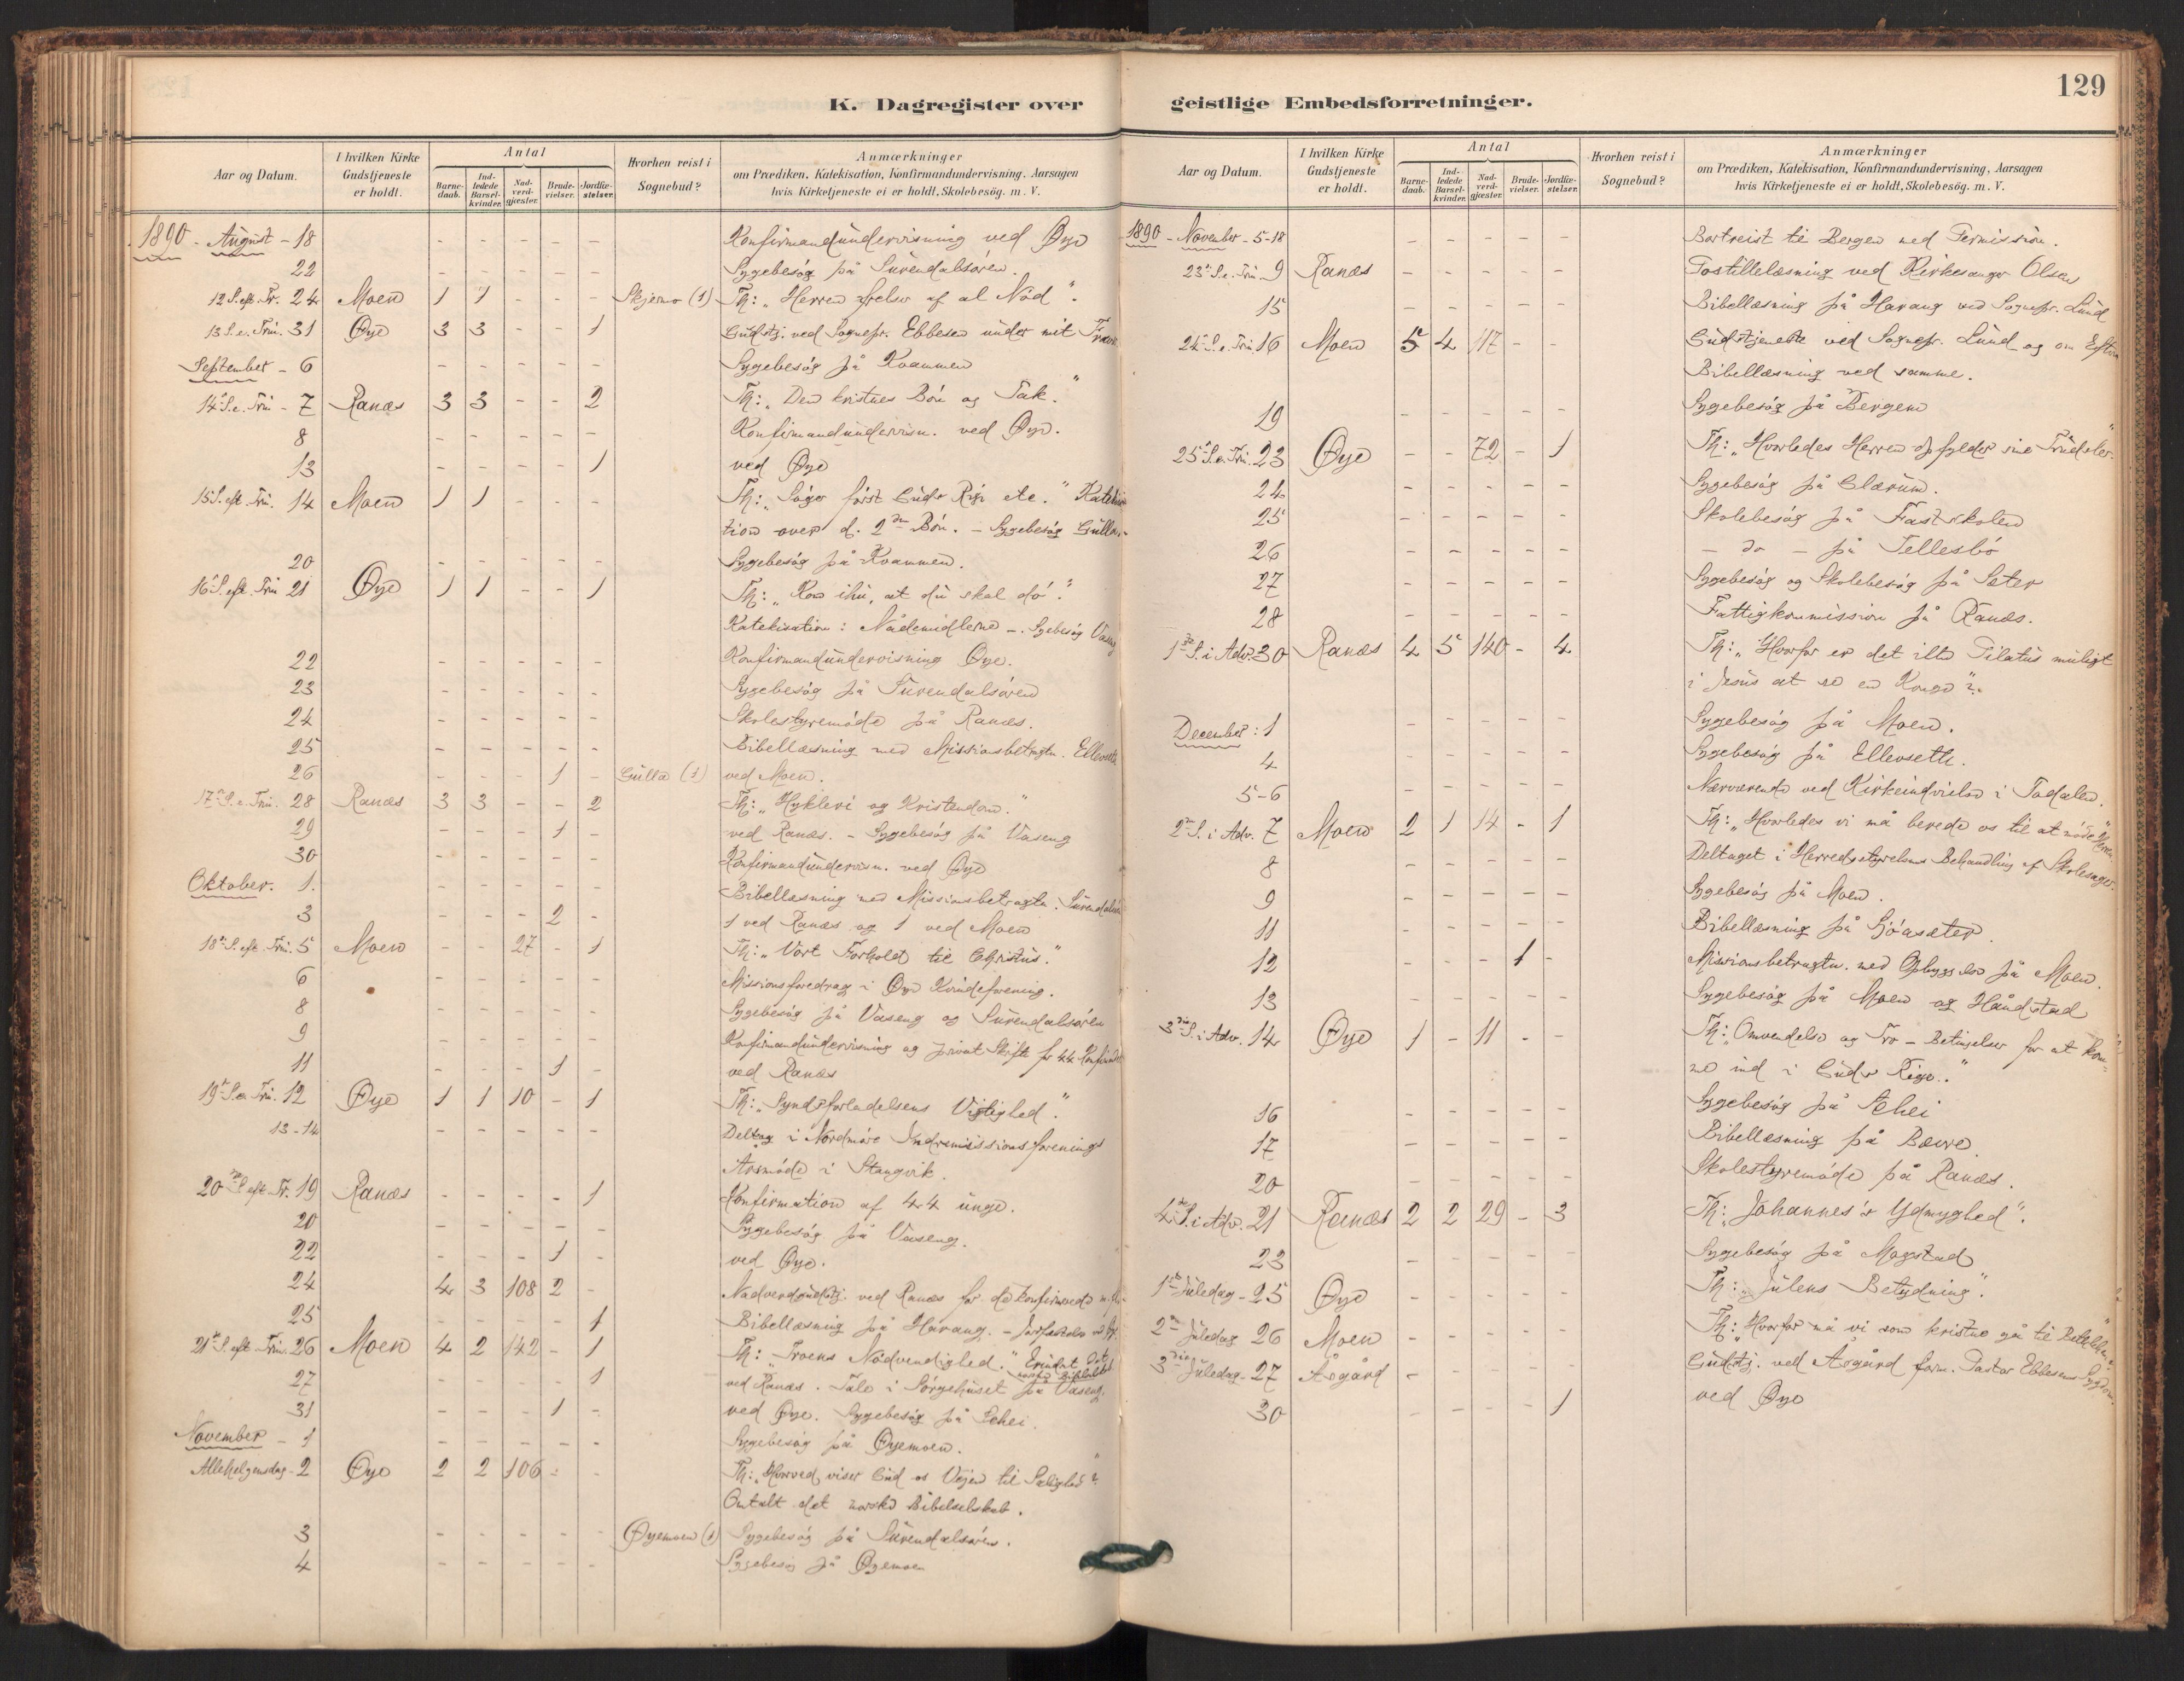 K. Dagregister over
Aar og Datum. I hvilken Kirke Gudstjeneste er holdt. Antal Barnedaab. Indledede Barselkvinder. Nadverdgjæster. Brudevielser. Jordfæstelser. Hvorhen reist i Sognebud? Anmærkninger om Prædiken, Katekisation, Konfirmandundervisning, Aarsagen hvis Kirketjeneste ei er holdt, Skolebesög. m. V.
1890 - August - 18 - - - - - Konfirmandundervisning ved Øye
22 - - - - - Sygebesög på Surendalsören.
12 S. eft. Tr. 24 Moen 1 1 - - - Skjermo (1) Th: „Herren frelser af al Nöd".
13 S. e. Trin. 31 Øye 3 3 - - 1 Gudstj. ved Sognepr. Ebbesen under mit
September - 6 - - - - - Sygebesög på Kvammen
14 S. e. Trin - 7 Ranæs 3 3 - - 2 Th: „Den kristnes Bön og Tak."
8 - - - - - Konfirmandundervisn. ved Øye.
13 - - - - 1 ved Øye
15 S. eft. Trin. 14 Moen 1 1 - - - Th: „Söger först Guds Rige etc."
tion over d. 2den Bön. - Sygebesög
20 - - - - - Sygebesög på Kvammen.
16 S. eft. Trin 21 Øye 1 1 - - 1 Th: „Kom ihu, at du skal dö".
Katekisation: Nådemidlerne -. Sygebesög Vaseng
22 - - - - - Konfirmandundervisning Øye.
23 - - - - - Sygebesög på Surendalsören
24 - - - - - Skolestyremöde på Ranæs.
25 - - - - - Bibellæsning med Missionsbetragtn.
26 - - - 1 - Gulla (1) ved Moen.
17 S. e. Trin. 28 Ranæs 3 3 - - 2 Th: „Hykleri og Kristendom."
29 - - - 1 - ved Ranæs. - Sygebesög på Vaseng
30 - - - - - Konfirmandundervisn. ved Øye
Oktober. 1. - - - - - Bibellæsning med Missionsbetragtn.
3 - - - 2 - 1 ved Ranæs og 1 ved Moen
18 S. eft. Trin. 5 Moen - - 27 - 1 Th: „Vort Forhold til Christus."
6 - - - - - Missionsforedrag i Øye Kvindeforening.
8 - - - - - Sygebesög på Vaseng og Surendalsören
9 - - - - - Konfirmandundervisning og privat Skrifte for 44
11 - - - 1 - ved Ranæs
19 S. e. Trin. 12 Øye 1 1 10 - 1 Th: „Syndsforladelsens Vigtighed."
13-14 - - - - - Deltog i Nordmöre Indremissionsforenings
Årsmöde i Stangvik.
20 S. eft. Tr. 19 Ranæs - - - - 1 Konfirmation af 44 unge.
20 - - - - - Sygebesög på Vaseng.
22 - - - 1 - ved Øye.
24 4 3 108 2 - Nadverdgudstj. ved Ranæs for de konfirmerede
25 - - - - 1 Bibellæsning på Harang. -
21 S. eft. Trin. 26 Moen 4 2 142 - 1 Th: „Troens Nödvendighed."
27 - - - - 1 ved Ranæs. Tale i Sörgehuset på Vaseng.
31 - - - 1 - ved Øye. Sygebesög på
November - 1 - - - - - Sygebesög på Øyemoen.
Allehelgensdag - 2 Øye 2 2 106 - - Th: „Hvorved viser Gud os Vejen til Salighed?"
Omtalt det norske Bibelselskab.
3 - - - - - Øyemoen (1) Sygebesög på Surendalsören.
4 - - - - - Sygebesög på Øyemoen
129
geistlige Embedsforretninger.
Aar og Datum. I hvilken Kirke Gudstjeneste er holdt. Antal Barnedaab. Indledede Barselkvinder. Nadverdgjæster. Brudevielser. Jordfæstelser. Hvorhen reist i Sognebud? Anmærkninger om Prædiken, Katekisation, Konfirmandundervisning, Aarsagen hvis Kirketjeneste ei er holdt, Skolebesög. m. V.
1890 - November - 5-18 - - - - - Bortreist til Bergen med Permission.
23 S. e. Trin - 9 Ranæs - - - - - Postillelæsning ved Kirkesanger Olsen
15 - - - - - Bibellæsning på Harang ved Sognepr. Lund
24 S. e. Trin 16 Moen 5 4 117 - - Gudstjeneste ved Sognepr. Lund og om
Bibellæsning ved samme.
19 - - - - - Sygebesög på Bergem
25 S. e. Trin. 23 Øye - - 72 - 1 Th: „Hvorledes Herren opfylder sine
24 - - - - - Sygebesög på Glærum.
25 - - - - - Skolebesög på Fastskolen
26 - - - - - - do - på Tellesbö
27 - - - - - Sygebesög og Skolebesög på Sæter
28 - - - - - Fattigkommission på Ranæs.
1 S. i Adv. 30 Ranæs 4 5 140 - 4 Th: „Hvorfor er det ikke Pilatus muligt
i Jesus at se en Konge"?
December: 1 - - - - - Sygebesög på Moen.
4 - - - - - Sygebesög på Ellevseth.
5-6 - - - - - Nærværende ved Kirkeindvielse i Todalen.
2 S. i Adv. 7 Moen 2 1 14 - 1 Th: „Hvorledes vi må berede os til at möde Herren"
8 - - - - - Deltaget i Herredsstyrelsens Behandling af Skolesager.
9 - - - - - Sygebesög på Moen.
11 - - - - - Bibellæsning på Sjöasæter.
12 - - - 1 - Missionsbetragtn. med Opbyggelse på Moen.
13 - - - - - Sygebesög på Moen og Håndstad
3 S. i Adv. 14 Øye 1 - 11 - - Th: „Omvendelse og Tro - Betingelser for at kom-
me ind i Guds Rige."
16 - - - - - Sygebesög på
17 - - - - - Bibellæsning på Bævre.
20 - - - - - Skolestyremöde på Ranæs.
4 S. i Adv. 21 Ranæs 2 2 29 - 3 Th: „Johannes's Ydmyghed".
23 - - - - - Sygebesög på Mogstad
1 Juledag - 25 Øye - - - - - Th: „Julens Betydning".
2 Juledag 26 Moen - - - - - Th: „Hvorfor må vi som kristne gå til Betlehem"
3 Juledag - 27 Åsgård - - - - - Gudstj. ved Åsgård form. Pastor Ebbesens Sygdom
30 - - - - 1 ved Øye